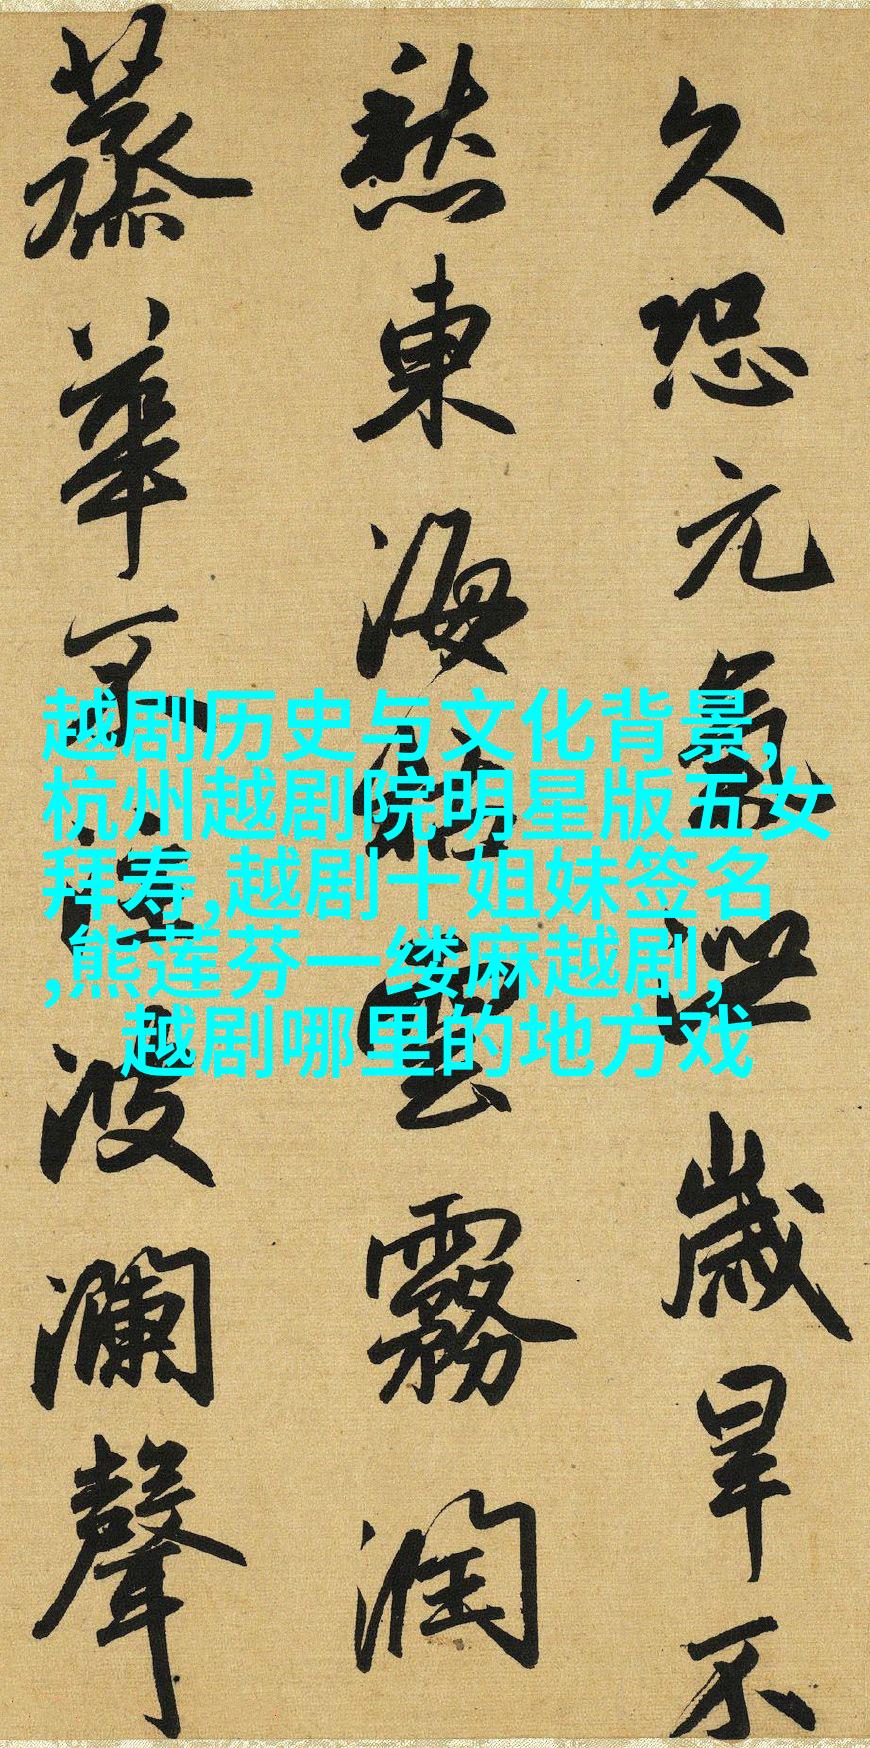 久恐元氣泄歲旱不
愁東海枯雲霧潤
蒸華不注波瀾聲
越剧历史与文化背景,
杭州越剧院明星版五女
拜寿,越剧十姐妹签名
,熊莲芬一缕麻越剧,
越剧哪里的地方戏